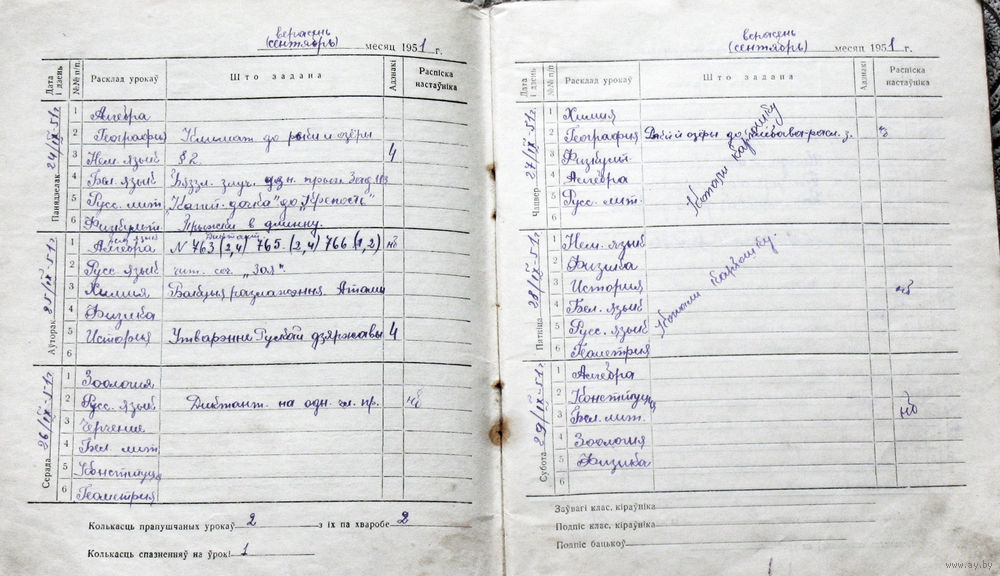 верасень
(сентябрь) месяц 1951 г.
Дата і дзень №№ п/п. Расклад урокаў Што задана Адзнакі Распіска настаўніка
Панядзелак 24/IX-51 г.
1 Алгебра
2 География Климат до реки и озёры
3 Нем. язык § 2. 4
4 Бел. язык Бяззл. злуч. дзн. прын. Зад. 113
5 Русс. лит. "Капит. дочка" до "Крепость"
6 Физкульт. Прыжки в длинну.
Аўторак 25/IX-51 г.
нем. язык Диктант
1 Алгебра N 763 (2,4) 765. (2,4) 766 (1,2) нб
2 Русс. язык чит. соч. "Зоя".
3 Химия Вакбуня разлажэння. Атамы
4 Физика
5 История Утварэнне Рускай дзяржавы 4
6
Серада 26/IX-51 г.
1 Зоология
2 Русс. язык Диктант. на одн. чл. пр. нб
3 Черчение
4 Бел. лит.
5 Конституция
6 Геометрия
Колькасць прапушчаных урокаў 2 з іх па хваробе 2
Колькасць спазненняў на ўрокі 1
верасень
(сентябрь) месяц 1951 г.
Дата і дзень №№ п/п Расклад урокаў Што задана Адзнакі Распіска настаўніка
Чацвер 27/IX-51 г.
1 Химия
2 География Рекі и озёры до 3
3 Физкульт.
4 Алгебра
5 Русс. лит.
6
Копали картошку
Пятніца 28/IX-51 г.
1 Нем. язык
2 Физика
3 История нб
4 Бел. язык
5 Русс. язык
6 Геометрия
Копали картошку.
Субота 29/IX-51 г.
1 Алгебра
2 Конституция
3 Бел. лит. нб
4 Зоология
5 Физика
6
Заўвагі клас. кіраўніка
Подпіс клас. кіраўніка
Подпіс бацькоў
1
www.ay.by